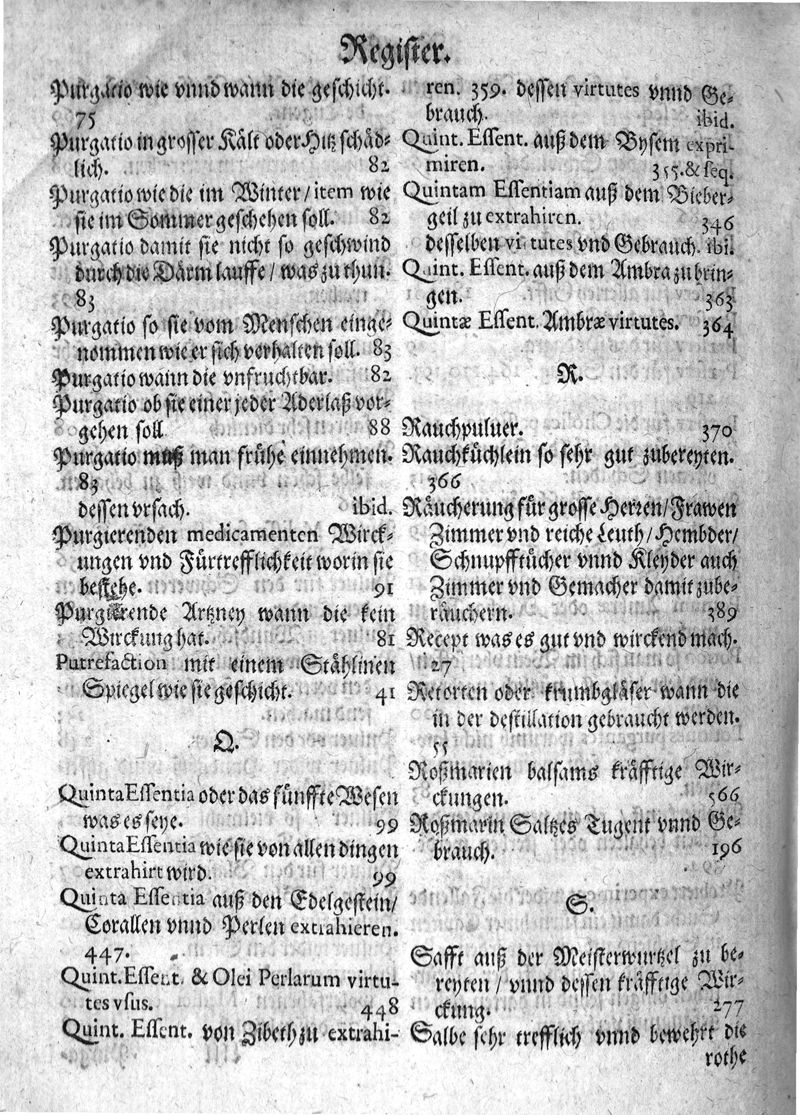 Register.
Purgatio wie vnnd wann die geschicht.
75
Purgatio in grosser Kält oder Hitz schäd-
lich. 82
Purgatio wie die im Winter / item wie
sie im Sommer geschehen soll. 82
Purgatio damit sie nicht so geschwind
durch die Därm lauffe / was zu thun.
83
Purgatio so sie vom Menschen einge-
nommen wie er sich verhalten soll. 83
Purgatio wann die vnfruchtbar. 82
Purgatio ob sie einer jeder Aderlaß vor-
gehen soll 88
Purgatio muß man frühe einnehmen.
83
dessen vrsach. ibid.
Purgierenden medicamenten Wirck-
ungen vnd Fürtrefflichkeit worin sie
bestehe. 91
Purgierende Artzney wann die kein
Wirckung hat. 81
Putrefaction mit einem Stählinen
Spiegel wie sie geschicht. 41
Q.
Quinta Essentia oder das fünffte Wesen
was es seye. 99
Quinta Essentia wie sie von allen dingen
extrahirt wird. 99
Quinta Essentia auß den Edelgestein /
Corallen vnnd Perlen extrahieren.
447.
Quint. Essent. & Olei Perlarum virtu-
tes vsus. 448
Quint. Essent. von Zibeth zu extrahi-
ren. 359. dessen virtutes vnnd Ge-
brauch. ibid.
Quint. Essent. auß dem Bysem expri-
miren. 355. & seq.
Quintam Essentiam auß dem Bieber-
geil zu extrahiren. 346
desselben virtutes vnd Gebrauch. ibi.
Quint. Essent. auß dem Ambra zu brin-
gen. 363
Quintæ Essent. Ambræ virtutes. 364
R.
Rauchpuluer. 370
Rauchküchlein so sehr gut zubereyten.
366
Räucherung für grosse Herren / Frawen
Zimmer vnd reiche Leuth / Hembder /
Schnupfftücher vnnd Kleyder auch
Zimmer vnd Gemacher damit zube-
räuchern. 389
Recept was es gut vnd wirckend mach.
27
Retorten oder krumbgläser wann die
in der destillation gebraucht werden.
55
Roßmarien balsams kräfftige Wir-
ckungen. 566
Roßmarin Saltzes Tugent vnnd Ge-
brauch. 196
S.
Safft auß der Meisterwurtzel zu be-
reyten / vnnd dessen kräfftige Wir-
ckung. 277
Salbe sehr trefflich vnnd bewehrt die
rothe